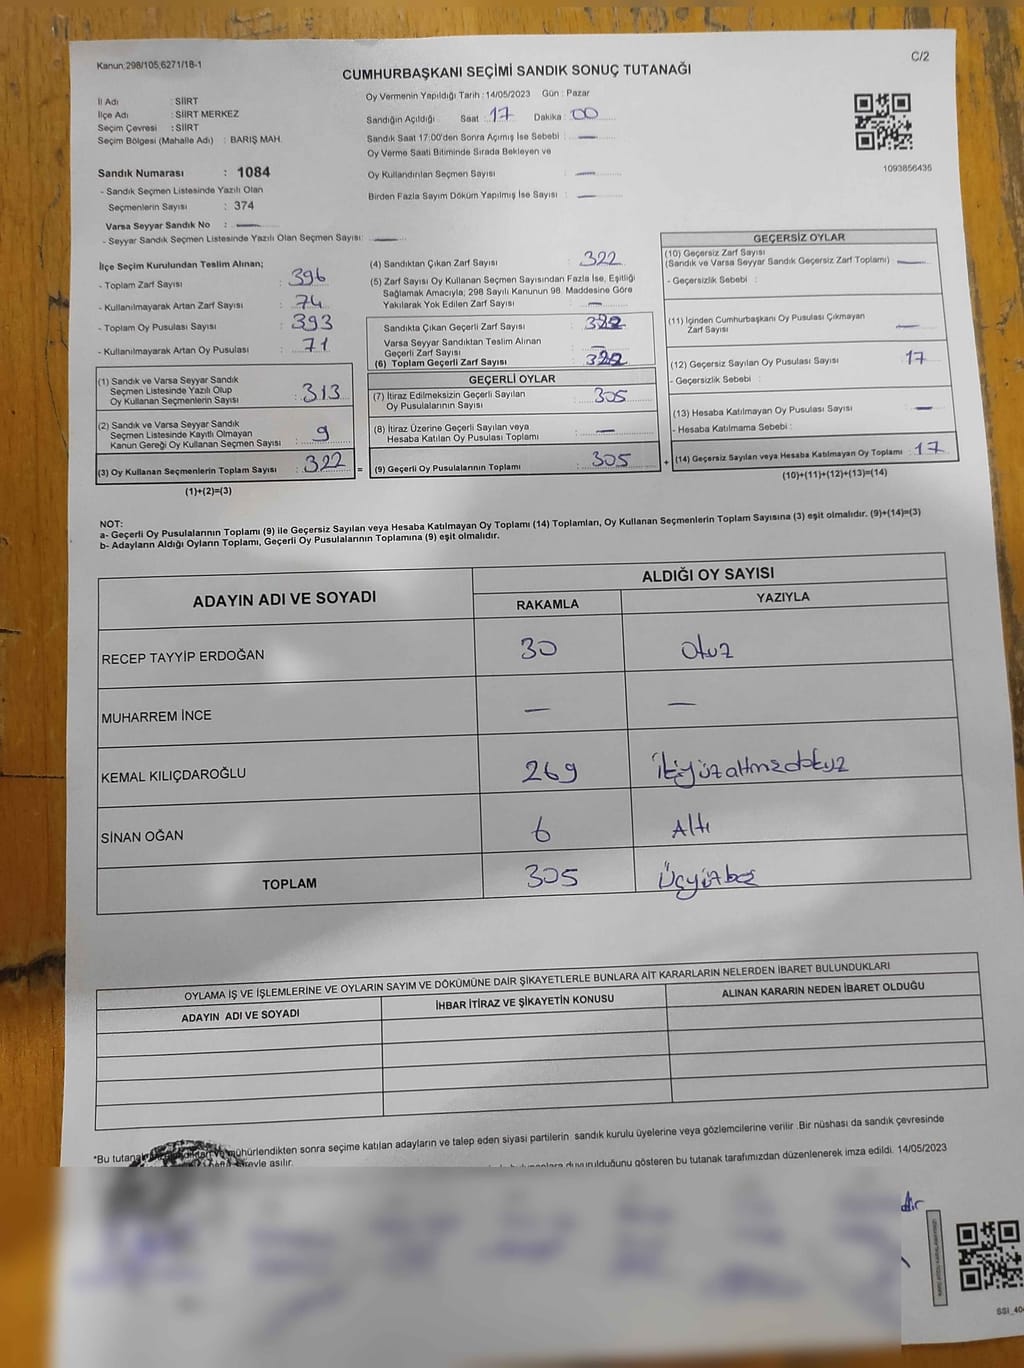 Kanun;298/105,6271/18-1
C/2
CUMHURBAŞKANI SEÇİMİ SANDIK SONUÇ TUTANAĞI
İl Adı : SİİRT
İlçe Adı : SİİRT MERKEZ
Seçim Çevresi : SİİRT
Seçim Bölgesi (Mahalle Adı) : BARIŞ MAH.
Sandık Numarası : 1084
- Sandık Seçmen Listesinde Yazılı Olan
Seçmenlerin Sayısı : 374
Varsa Seyyar Sandık No : —
- Seyyar Sandık Seçmen Listesinde Yazılı Olan Seçmen Sayısı: —
Oy Vermenin Yapıldığı Tarih :14/05/2023 Gün : Pazar
Sandığın Açıldığı Saat : 17 Dakika : 00
Sandık Saat 17:00'den Sonra Açımış İse Sebebi : —
Oy Verme Saati Bitiminde Sırada Bekleyen ve
Oy Kullandırılan Seçmen Sayısı : —
Birden Fazla Sayım Döküm Yapılmış İse Sayısı : —
1093856435
İlçe Seçim Kurulundan Teslim Alınan;
- Toplam Zarf Sayısı : 396
- Kullanılmayarak Artan Zarf Sayısı : 74
- Toplam Oy Pusulası Sayısı : 393
- Kullanılmayarak Artan Oy Pusulası : 71
(1) Sandık ve Varsa Seyyar Sandık
Seçmen Listesinde Yazılı Olup
Oy Kullanan Seçmenlerin Sayısı : 313
(2) Sandık ve Varsa Seyyar Sandık
Seçmen Listesinde Kayıtlı Olmayan
Kanun Gereği Oy Kullanan Seçmen Sayısı : 9
(3) Oy Kullanan Seçmenlerin Toplam Sayısı : 322 =
(1)+(2)=(3)
(4) Sandıktan Çıkan Zarf Sayısı : 322
(5) Zarf Sayısı Oy Kullanan Seçmen Sayısından Fazla İse, Eşitliği
Sağlamak Amacıyla, 298 Sayılı Kanunun 98. Maddesine Göre
Yakılarak Yok Edilen Zarf Sayısı : —
Sandıkta Çıkan Geçerli Zarf Sayısı : 322
Varsa Seyyar Sandıktan Teslim Alınan
Geçerli Zarf Sayısı : —
(6) Toplam Geçerli Zarf Sayısı : 322
GEÇERLİ OYLAR
(7) İtiraz Edilmeksizin Geçerli Sayılan
Oy Pusulalarının Sayısı : 305
(8) İtiraz Üzerine Geçerli Sayılan veya
Hesaba Katılan Oy Pusulası Toplamı : —
(9) Geçerli Oy Pusulalarının Toplamı : 305 +
GEÇERSİZ OYLAR
(10) Geçersiz Zarf Sayısı
(Sandık ve Varsa Seyyar Sandık Geçersiz Zarf Toplamı) : —
- Geçersizlik Sebebi :
(11) İçinden Cumhurbaşkanı Oy Pusulası Çıkmayan
Zarf Sayısı : —
(12) Geçersiz Sayılan Oy Pusulası Sayısı : 17
- Geçersizlik Sebebi :
(13) Hesaba Katılmayan Oy Pusulası Sayısı : —
- Hesaba Katılmama Sebebi :
(14) Geçersiz Sayılan veya Hesaba Katılmayan Oy Toplamı : 17
(10)+(11)+(12)+(13)=(14)
NOT:
a- Geçerli Oy Pusulalarının Toplamı (9) ile Geçersiz Sayılan veya Hesaba Katılmayan Oy Toplamı (14) Toplamları, Oy Kullanan Seçmenlerin Toplam Sayısına (3) eşit olmalıdır. (9)+(14)=(3)
b- Adayların Aldığı Oyların Toplamı, Geçerli Oy Pusulalarının Toplamına (9) eşit olmalıdır.
ADAYIN ADI VE SOYADI
ALDIĞI OY SAYISI
RAKAMLA YAZIYLA
RECEP TAYYİP ERDOĞAN 30 Otuz
MUHARREM İNCE — —
KEMAL KILIÇDAROĞLU 269 ikiyüzaltmışdokuz
SİNAN OĞAN 6 Altı
TOPLAM 305 Üçyüzbeş
OYLAMA İŞ VE İŞLEMLERİNE VE OYLARIN SAYIM VE DÖKÜMÜNE DAİR ŞİKAYETLERLE BUNLARA AİT KARARLARIN NELERDEN İBARET BULUNDUKLARI
ADAYIN ADI VE SOYADI İHBAR İTİRAZ VE ŞİKAYETİN KONUSU ALINAN KARARIN NEDEN İBARET OLDUĞU
*Bu tutanak mühürlendikten sonra seçime katılan adayların ve talep eden siyasi partilerin sandık kurulu üyelerine veya gözlemcilerine verilir .Bir nüshası da sandık çevresinde
asılır.
duyurulduğunu gösteren bu tutanak tarafımızdan düzenlenerek imza edildi. 14/05/2023